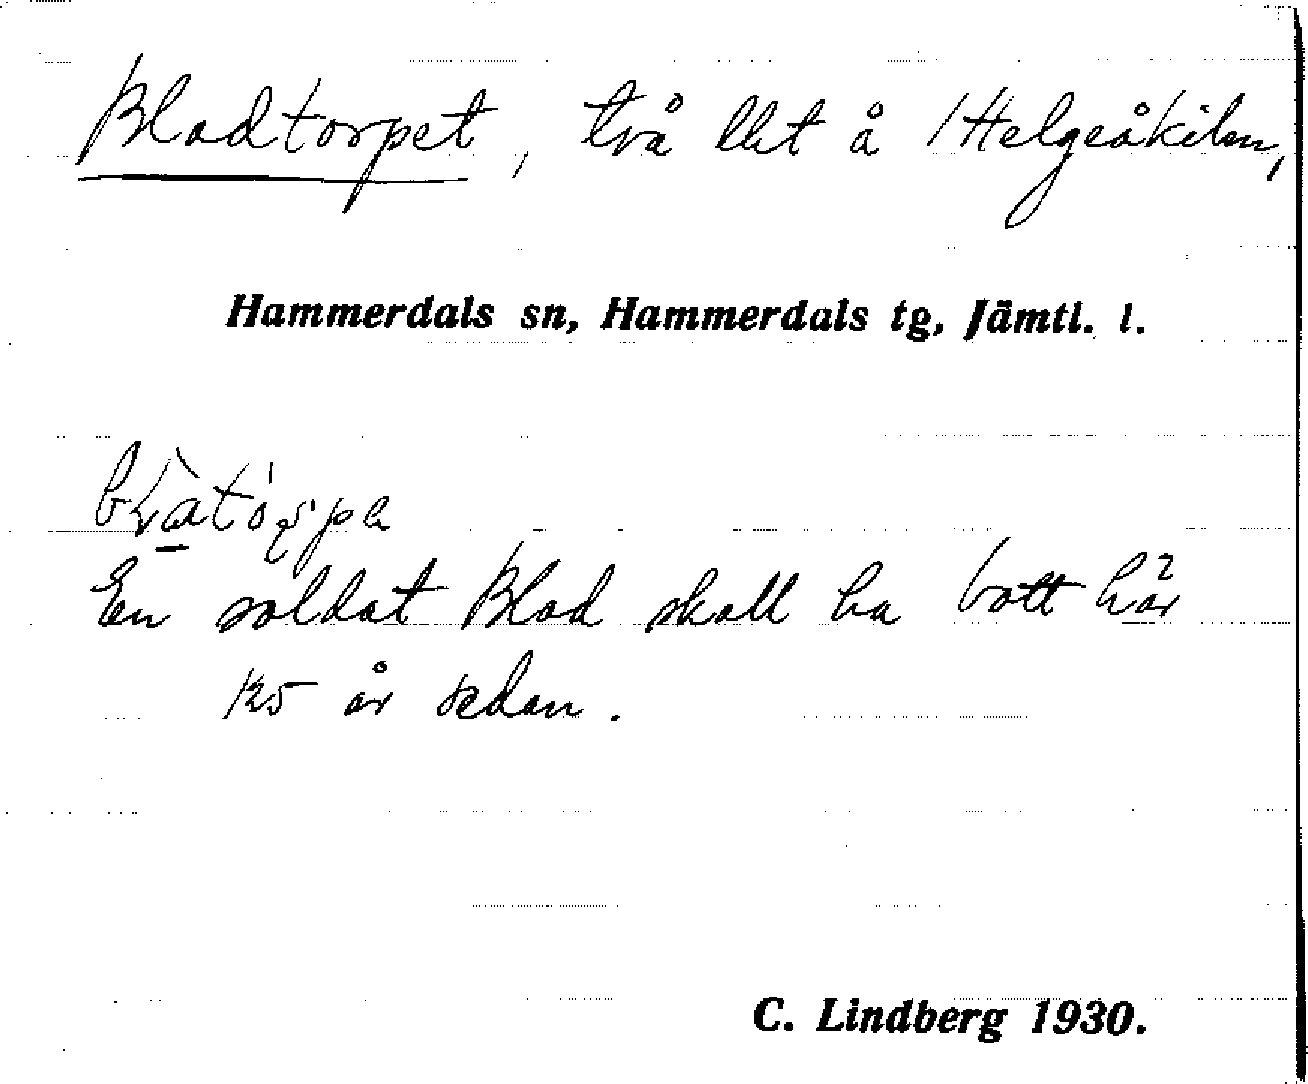 Bladtorpet, två llht å Helgeåkilen,
Hammerdals sn, Hammerdals tg, Jämtl. l.
En soldat Blad skall ha bott här
125 år sedan.
C. Lindberg 1930.